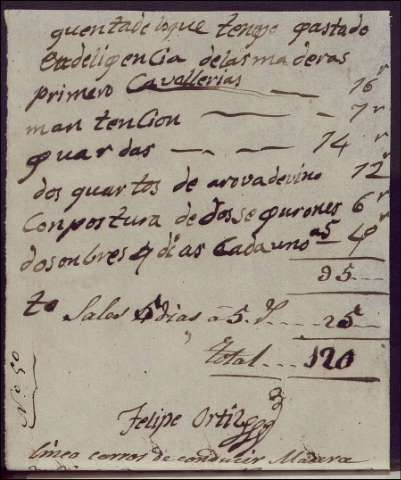 quentadeloque tengo gastado
En deligencia delasmaderas
primero Cavallerias 16 r
mantencion 7 r
guardas 14 r
dos quartos de arovadevino 12 r
Conpostura de dossegurones 6 r
dosonbres 4 dias Cadauno a5 40
95
to Salas 5 dias a 5 r 25
Total 120
Nº 50
Felipe Ortiz
linea carros de conducir Madera